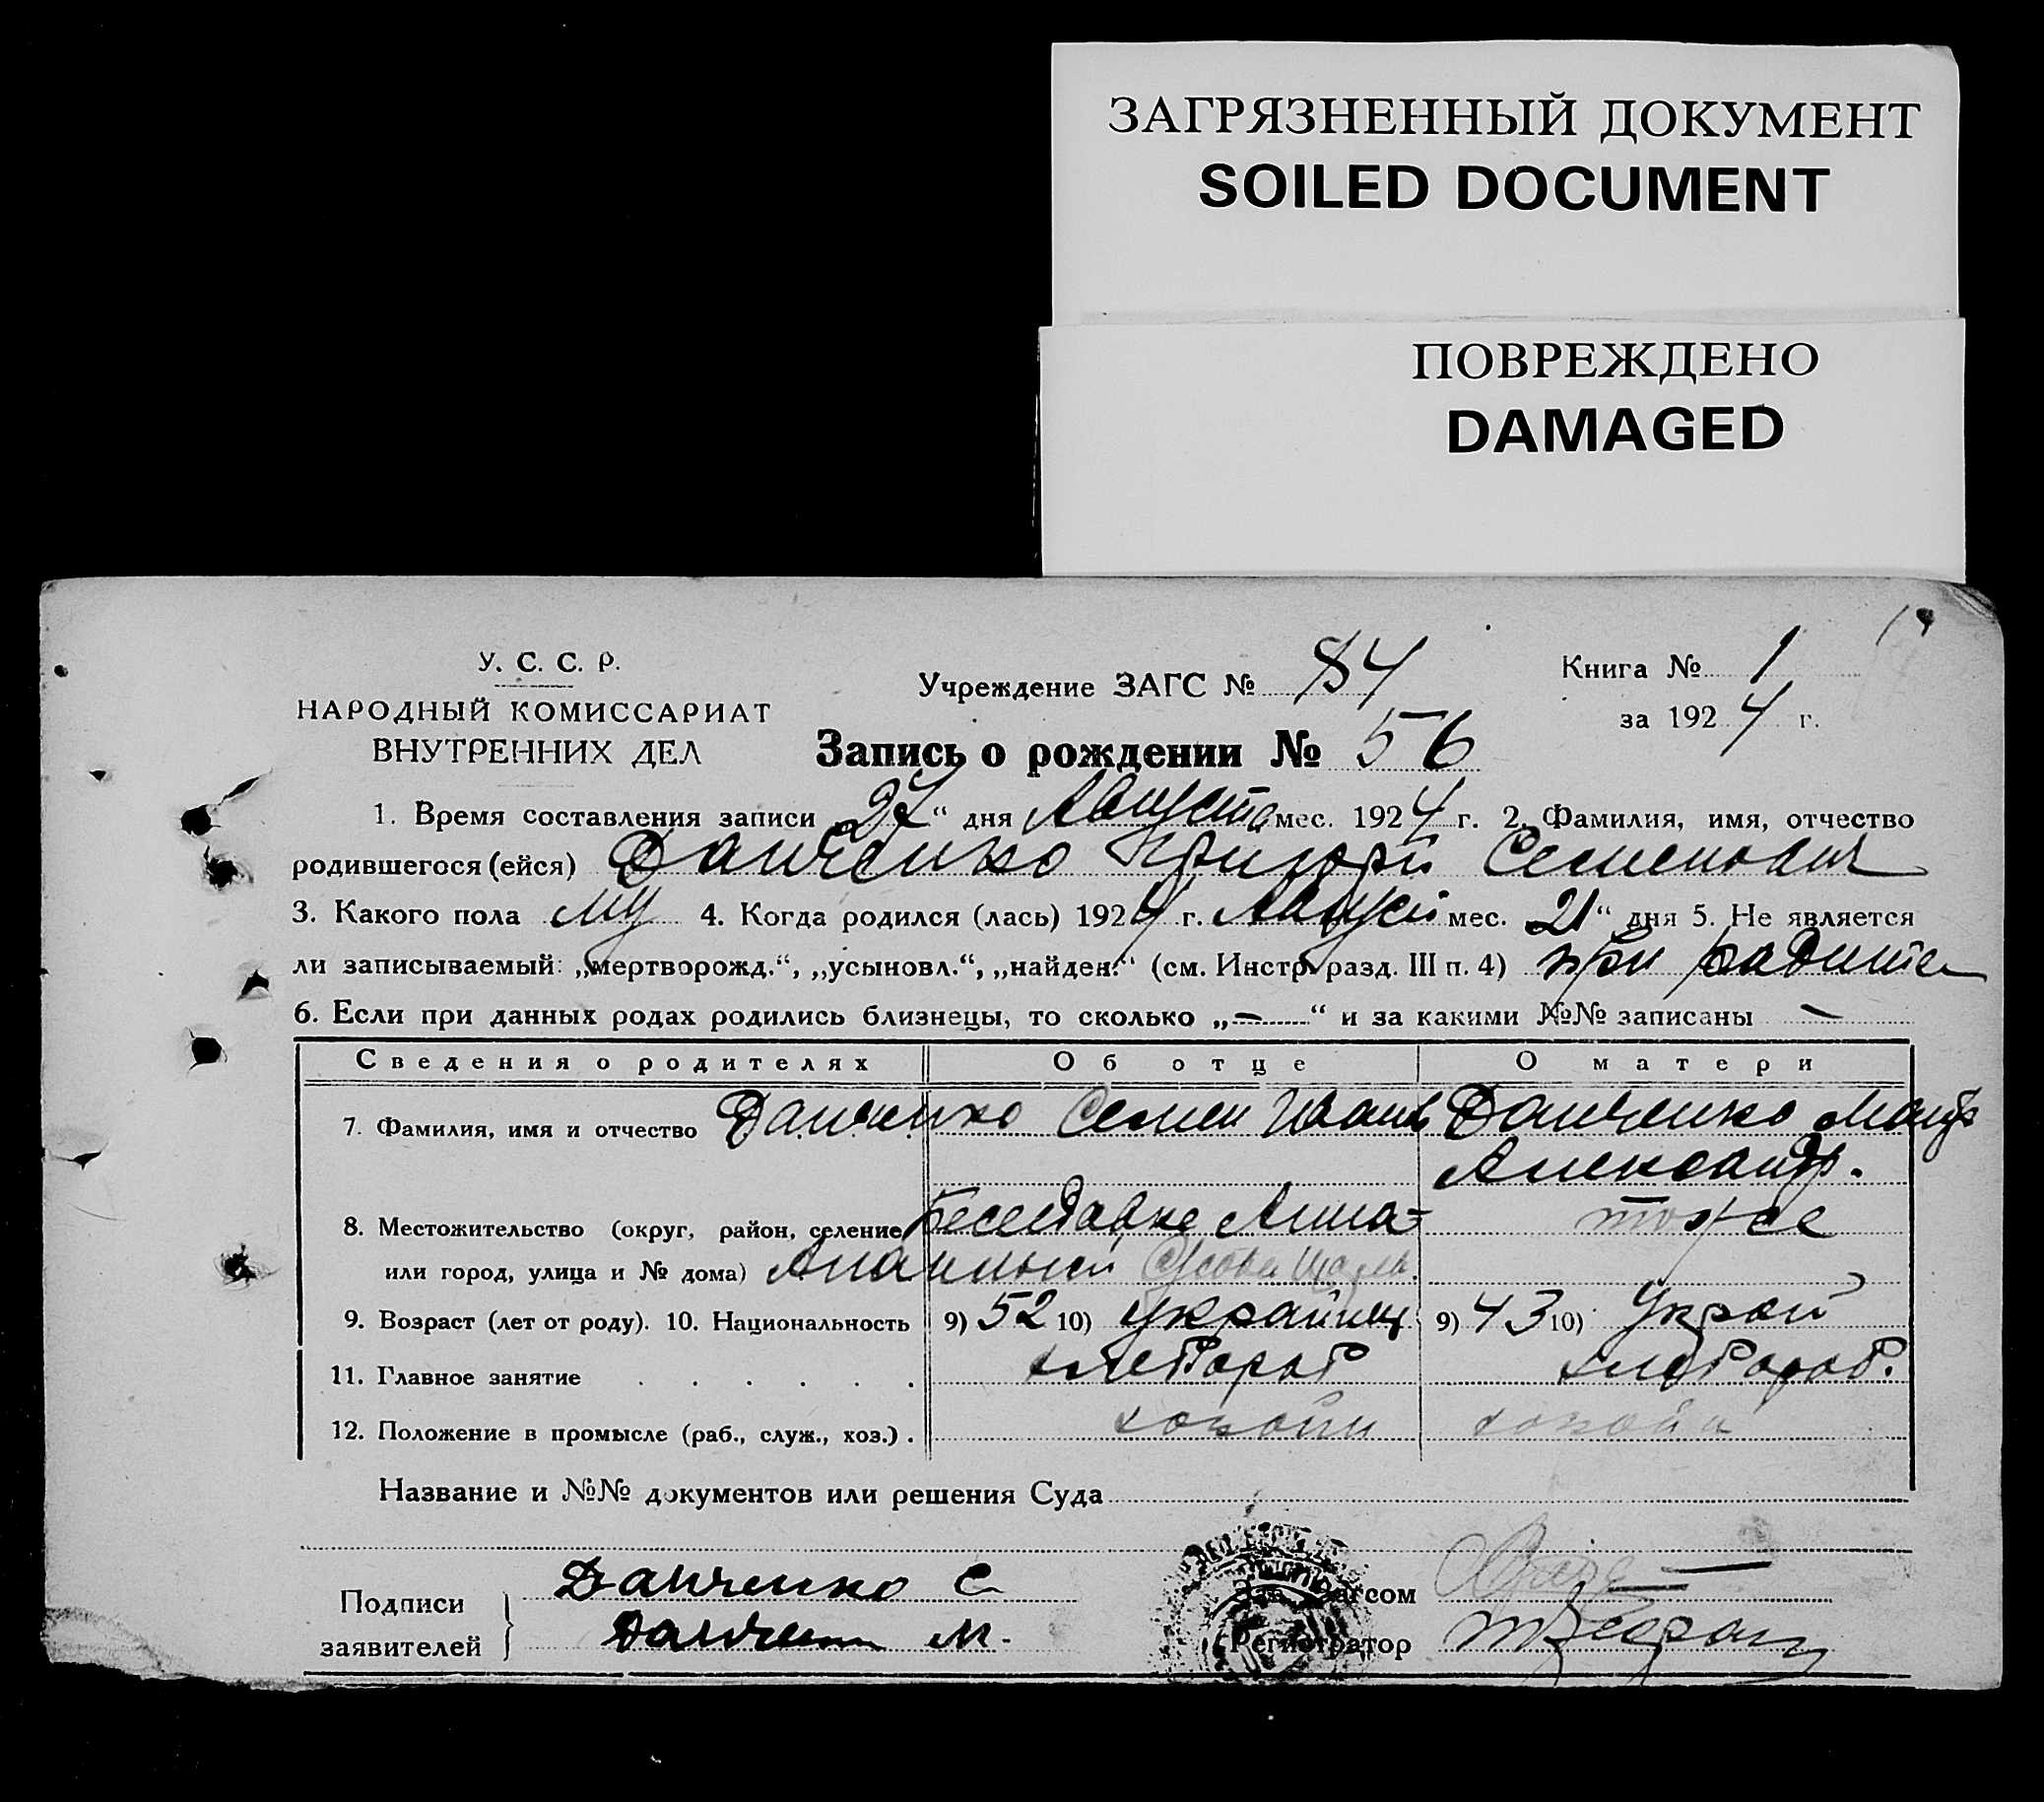 ЗАГРЯЗНЕННЫЙ ДОКУМЕНТ
SOILED DOCUMENT
ПОВРЕЖДЕНО
DAMAGED
У. С. С. Р.
НАРОДНЫЙ КОМИССАРИАТ
ВНУТРЕННИХ ДЕЛ
Учреждение ЗАГС № 84
Книга № 1
за 1924 г.
Запись о рождении № 56
1. Время составления записи „27“ дня Августа мес. 1924 г. 2. Фамилия, имя, отчество
родившегося (ейся) Данченко Григорий Семенович
3. Какого пола му 4. Когда родился (лась) 1924 г. Август мес. 21“ дня 5. Не является
ли записываемый: „мертворожд.“, „усыновл.“, „найден.“ (см. Инстр. разд. III п. 4) при
6. Если при данных родах родились близнецы, то сколько „—“ и за какими №№ записаны —
Сведения о родителях Об отце О матери
7. Фамилия, имя и отчество Данченко Семен Иванов Данченко
Александр.
8. Местожительство (округ, район, селение тоже
или город, улица и № дома)
9. Возраст (лет от роду). 10. Национальность 9) 52 10) украинец 9) 43 10) Украй
11. Главное занятие хлебороб хлебороб.
12. Положение в промысле (раб., служ., хоз.). хозяин
Название и №№ документов или решения Суда
Подписи
заявителей
Данченко С
Данченко М.
Зав. Загсом
Регистратор